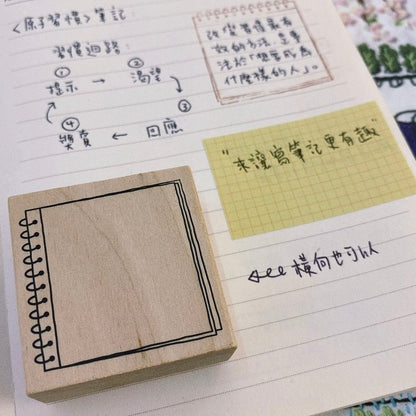 <原子習慣>筆記:
習慣迴路:
① ②
提示 → 渴望
③
④
獎賞 ← 回應
改變習慣最有
效的方法,是專
注於「想要成為
什麼樣的人」。
"來讓寫筆記更有趣"
橫向也可以